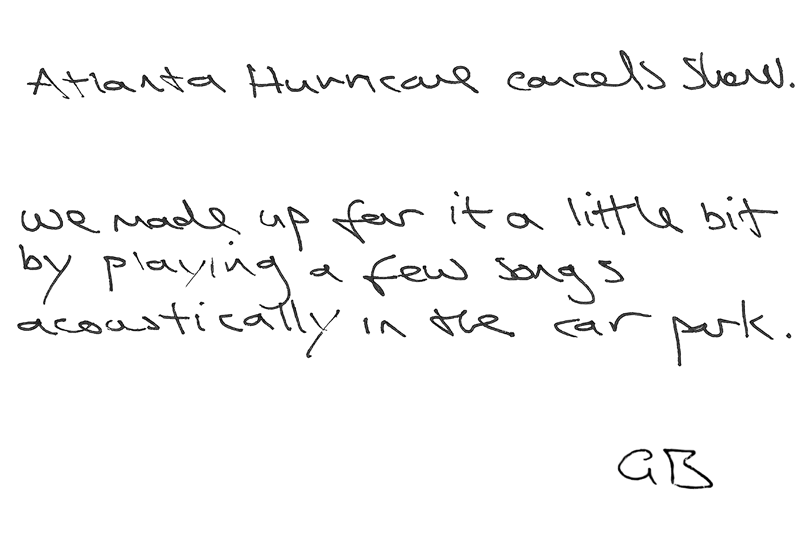 Atlanta Hurricane cancels show.
we made up for it a little bit
by playing a few songs
acoustically in the car park.
GB